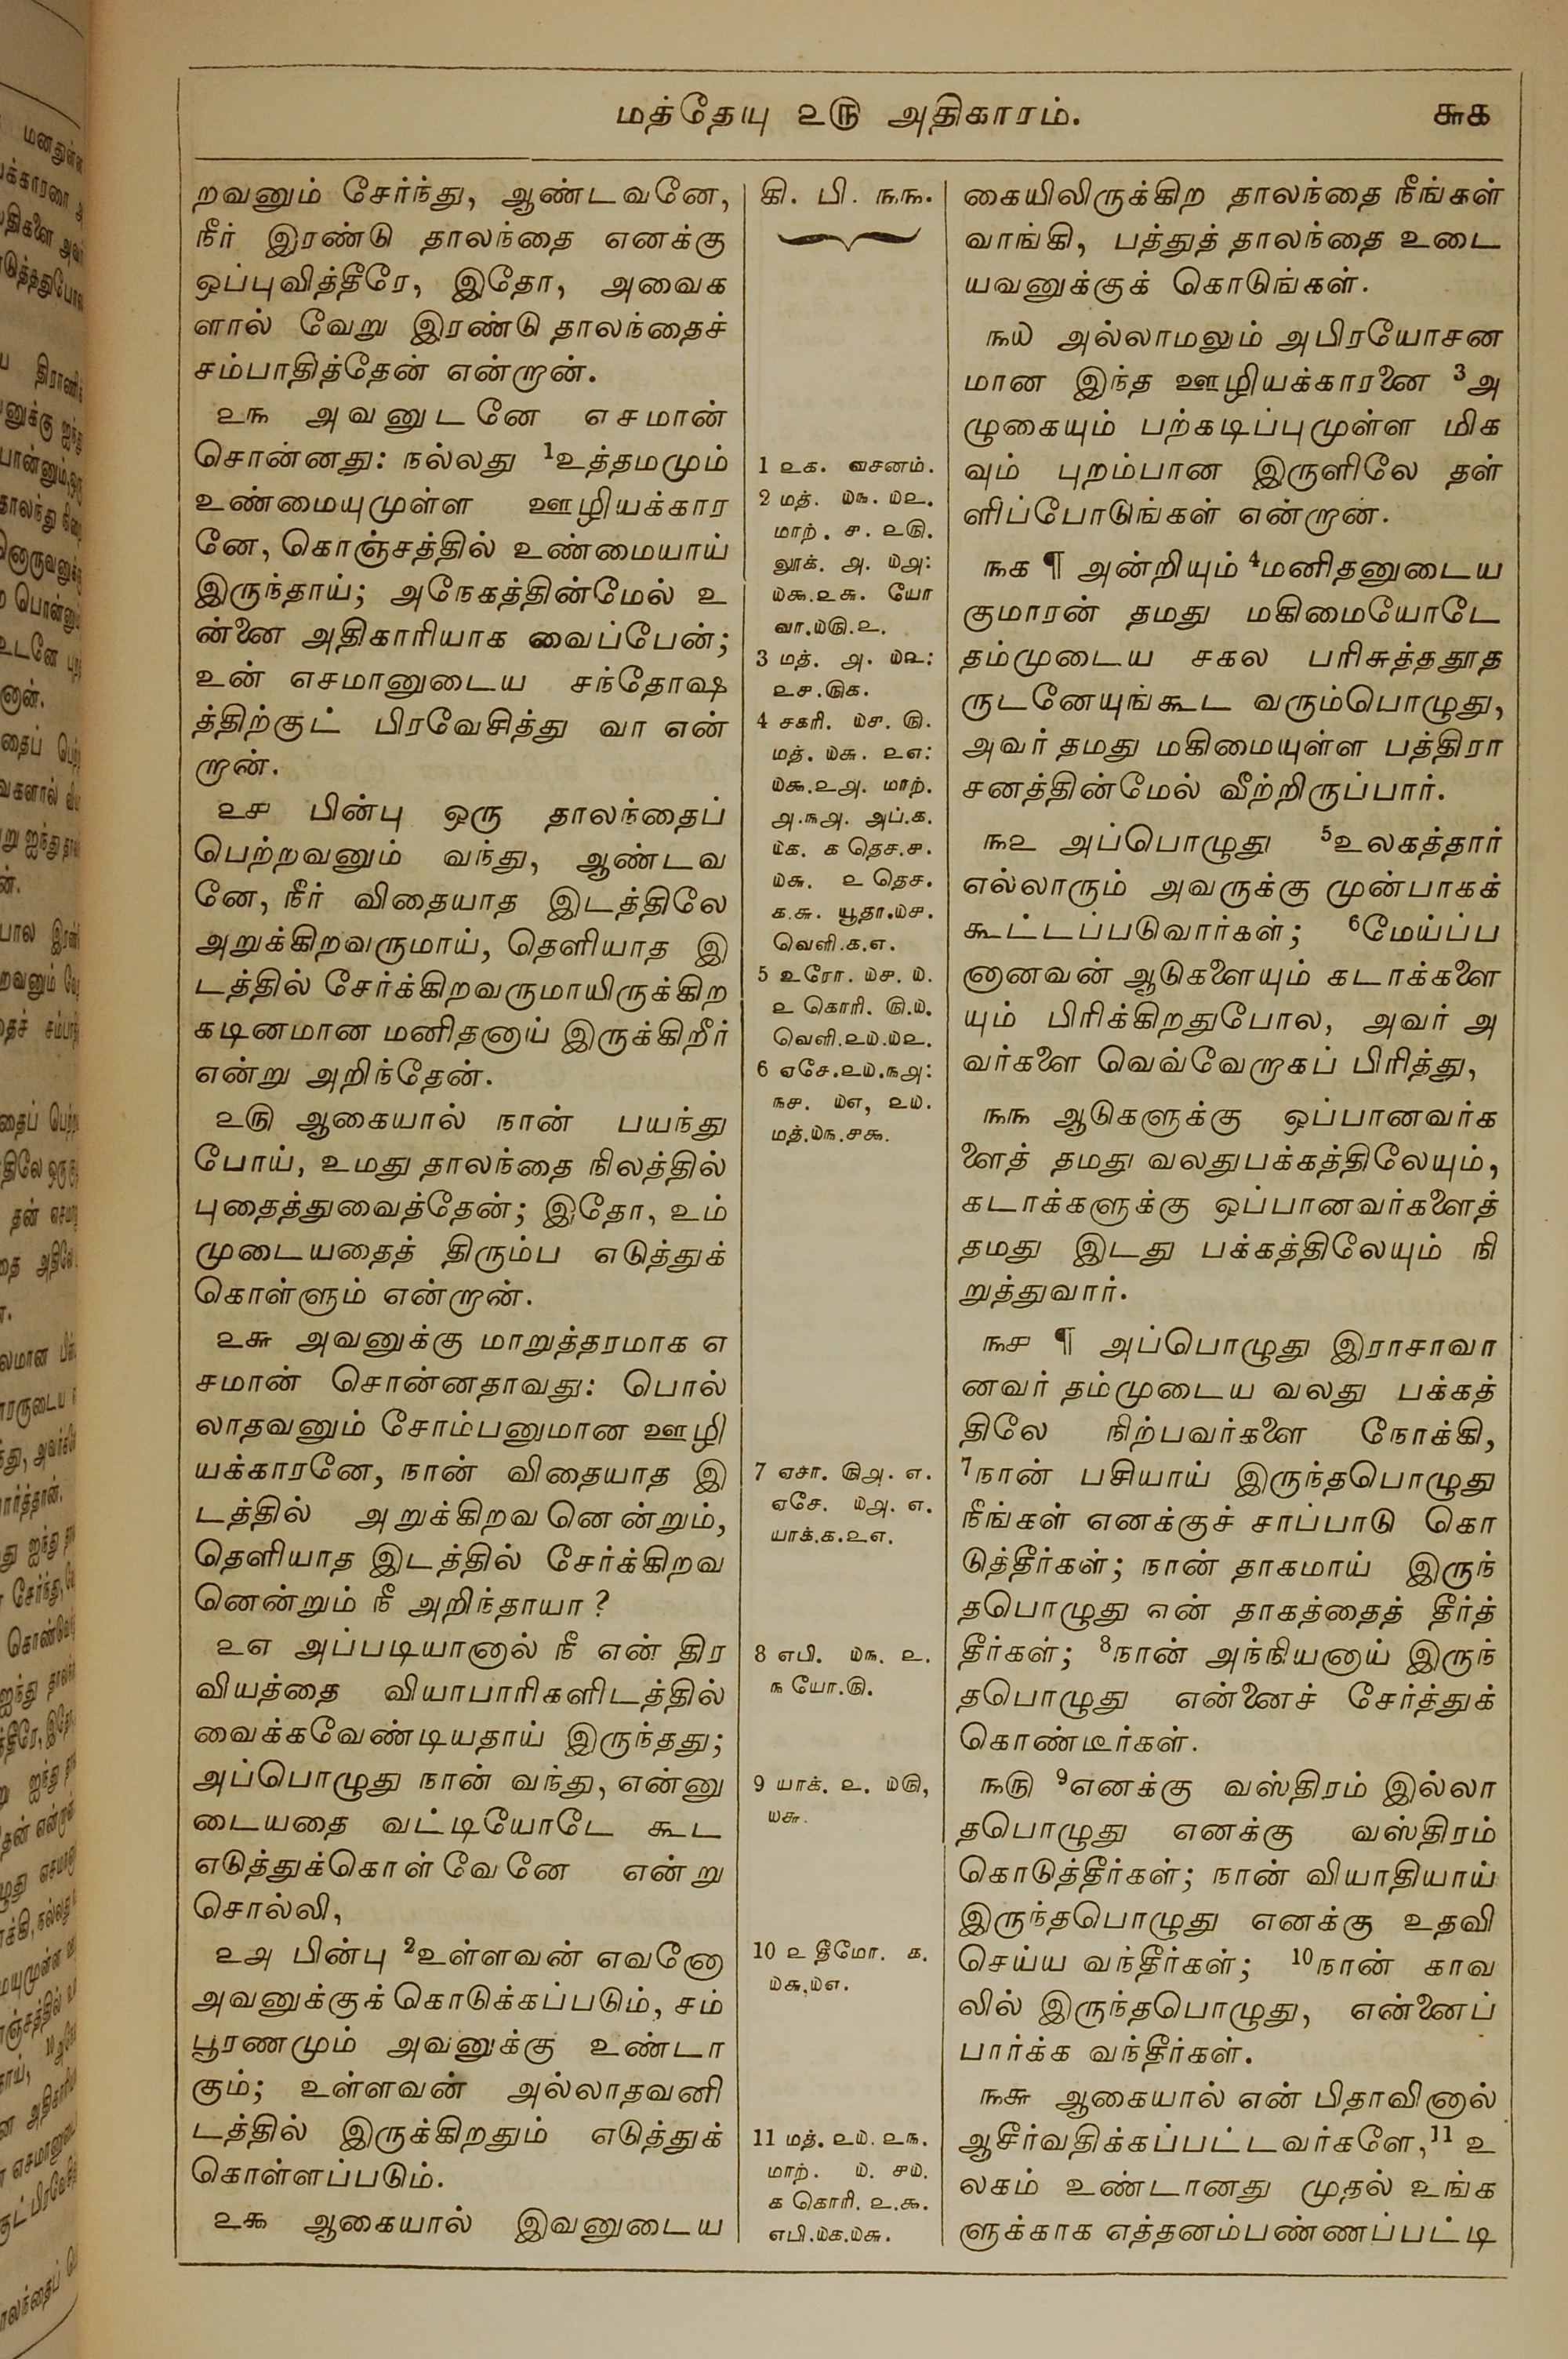 மத்தேயு ௨௫ அதிகாரம்.
௬௧
றவனும் சேர்ந்து, ஆண்டவனே,
நீர் இரண்டு தாலந்தை எனக்கு
ஒப்புவித்தீரே, இதோ, அவைக
ளால் வேறு இரண்டு தாலந்தைச்
சம்பாதித்தேன் என்றான்.
௨௩ அவனுடனே எசமான்
சொன்னது: நல்லது ¹உத்தமமும்
உண்மையுமுள்ள ஊழியக்கார
னே, கொஞ்சத்தில் உண்மையாய்
இருந்தாய்; அநேகத்தின்மேல் உ
ன்னை அதிகாரியாக வைப்பேன்;
உன் எசமானுடைய சந்தோஷ
த்திற்குட் பிரவேசித்து வா என்
றான்.
௨௪ பின்பு ஒரு தாலந்தைப்
பெற்றவனும் வந்து, ஆண்டவ
னே, நீர் விதையாத இடத்திலே
அறுக்கிறவருமாய், தெளியாத இ
டத்தில் சேர்க்கிறவருமாயிருக்கிற
கடினமான மனிதனாய் இருக்கிறீர்
என்று அறிந்தேன்.
௨௫ ஆகையால் நான் பயந்து
போய், உமது தாலந்தை நிலத்தில்
புதைத்துவைத்தேன்; இதோ, உம்
முடையதைத் திரும்ப எடுத்துக்
கொள்ளும் என்றான்.
௨௬ அவனுக்கு மாறுத்தரமாக எ
சமான் சொன்னதாவது: பொல்
லாதவனும் சோம்பனுமான ஊழி
யக்காரனே, நான் விதையாத இ
டத்தில் அறுக்கிறவனென்றும்,
தெளியாத இடத்தில் சேர்க்கிறவ
னென்றும் நீ அறிந்தாயா?
௨௭ அப்படியானால் நீ என் திர
வியத்தை வியாபாரிகளிடத்தில்
வைக்கவேண்டியதாய் இருந்தது;
அப்பொழுது நான் வந்து, என்னு
டையதை வட்டியோடே கூட
எடுத்துக்கொள்வேனே என்று
சொல்லி,
௨௮ பின்பு ²உள்ளவன் எவனோ
அவனுக்குக் கொடுக்கப்படும், சம்
பூரணமும் அவனுக்கு உண்டா
கும்; உள்ளவன் அல்லாதவனி
டத்தில் இருக்கிறதும் எடுத்துக்
கொள்ளப்படும்.
௨௯ ஆகையால் இவனுடைய
கி. பி. ௩௩.
1 ௨௧. வசனம்.
2 மத். ௰௩. ௰௨.
மாற். ௪. ௨௫.
லூக். ௮. ௰௮:
௰௯.௨௬. யோ
வா.௰௫.௨.
3 மத். ௮. ௰௨:
௨௪.௫௧.
4 சகரி. ௰௪. ௫.
மத். ௰௬. ௨௭:
௰௯.௨௮. மாற்.
௮.௩௮. அப்.௧.
௰௧. ௧ தெச.௪.
௰௬. ௨ தெச.
௧.௬. யூதா.௰௪.
வெளி.௧.௭.
5 உரோ. ௰௪. ௰.
௨ கொரி. ௫.௰.
வெளி.௨௰.௰௨.
6 ஏசே.௨௰.௩௮:
௩௪. ௰௭, ௨௰.
மத்.௰௩.௪௯.
7 ஏசா. ௫௮. ௭.
ஏசே. ௰௮. ௭.
யாக்.௧.௨௭.
8 எபி. ௰௩. ௨.
௩ யோ.௫.
9 யாக். ௨. ௰௫,
௰௬.
10 ௨ தீமோ. ௧.
௰௬.௰௭.
11 மத். ௨௰. ௨௩.
மாற். ௰. ௪௰.
௧ கொரி. ௨.௯.
எபி.௰௧.௰௬.
கையிலிருக்கிற தாலந்தை நீங்கள்
வாங்கி, பத்துத் தாலந்தை உடை
யவனுக்குக் கொடுங்கள்.
௩௰ அல்லாமலும் அபிரயோசன
மான இந்த ஊழியக்காரனை ³அ
ழுகையும் பற்கடிப்புமுள்ள மிக
வும் புறம்பான இருளிலே தள்
ளிப்போடுங்கள் என்றான்.
௩௧ ¶ அன்றியும் ⁴மனிதனுடைய
குமாரன் தமது மகிமையோடே
தம்முடைய சகல பரிசுத்ததூத
ருடனேயுங்கூட வரும்பொழுது,
அவர் தமது மகிமையுள்ள பத்திரா
சனத்தின்மேல் வீற்றிருப்பார்.
௩௨ அப்பொழுது ⁵உலகத்தார்
எல்லாரும் அவருக்கு முன்பாகக்
கூட்டப்படுவார்கள்; ⁶மேய்ப்ப
னானவன் ஆடுகளையும் கடாக்களை
யும் பிரிக்கிறதுபோல, அவர் அ
வர்களை வெவ்வேறாகப் பிரித்து,
௩௩ ஆடுகளுக்கு ஒப்பானவர்க
ளைத் தமது வலதுபக்கத்திலேயும்,
கடாக்களுக்கு ஒப்பானவர்களைத்
தமது இடது பக்கத்திலேயும் நி
றுத்துவார்.
௩௪ ¶ அப்பொழுது இராசாவா
னவர் தம்முடைய வலது பக்கத்
திலே நிற்பவர்களை நோக்கி,
⁷நான் பசியாய் இருந்தபொழுது
நீங்கள் எனக்குச் சாப்பாடு கொ
டுத்தீர்கள்; நான் தாகமாய் இருந்
தபொழுது என் தாகத்தைத் தீர்த்
தீர்கள்; ⁸நான் அந்நியனாய் இருந்
தபொழுது என்னைச் சேர்த்துக்
கொண்டீர்கள்.
௩௫ ⁹எனக்கு வஸ்திரம் இல்லா
தபொழுது எனக்கு வஸ்திரம்
கொடுத்தீர்கள்; நான் வியாதியாய்
இருந்தபொழுது எனக்கு உதவி
செய்ய வந்தீர்கள்; ¹⁰நான் காவ
லில் இருந்தபொழுது, என்னைப்
பார்க்க வந்தீர்கள்.
௩௬ ஆகையால் என் பிதாவினால்
ஆசீர்வதிக்கப்பட்டவர்களே,¹¹ உ
லகம் உண்டானது முதல் உங்க
ளுக்காக எத்தனம்பண்ணப்பட்டி